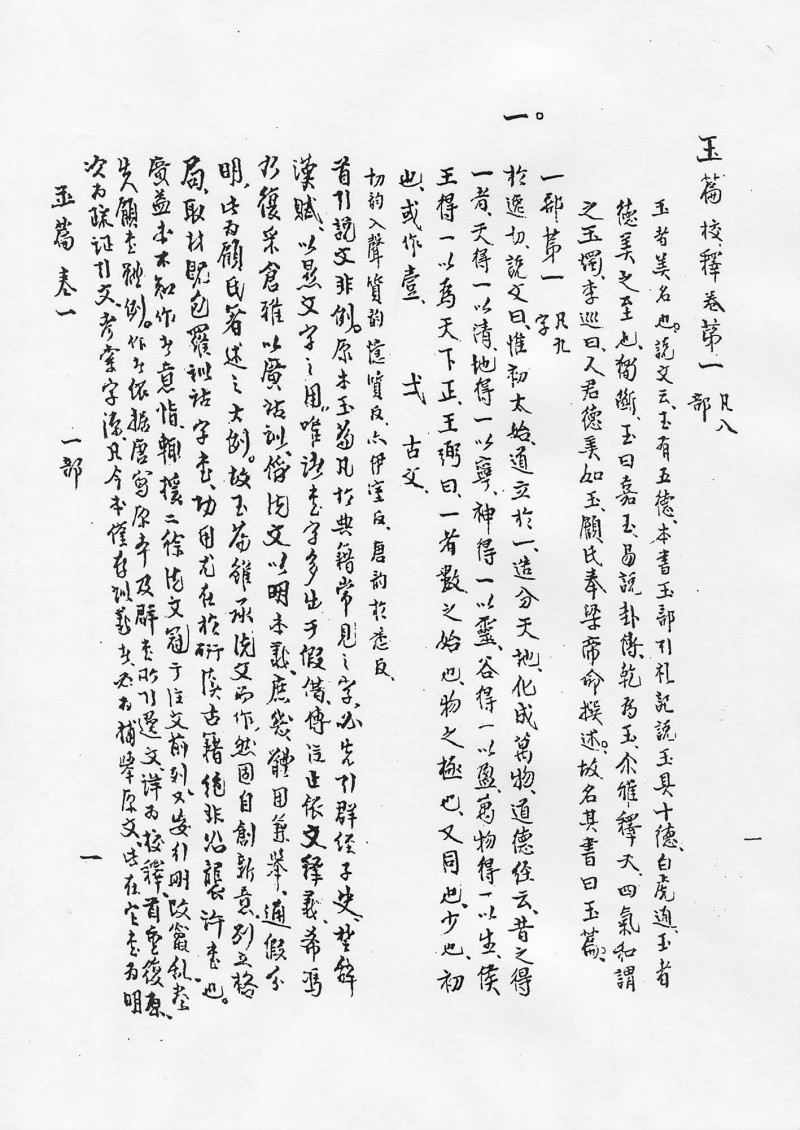 玉篇校釋卷第一 凡八部
玉者美名也。說文云、玉有五德、本書玉部引礼記說玉具十德、白虎通、玉者
德美之至也、獨斷、玉曰嘉玉、易說卦傳、乾為玉、尒雅釋天、四氣和謂
之玉燭、李巡曰、人君德美如玉、顧氏奉梁帝命撰述。故名其書曰玉篇。
一部第一 凡九字
一。於逸切、說文曰、惟初太始、道立於一、造分天地、化成萬物、道德經云、昔之得
一者、天得一以清、地得一以寧、神得一以靈、谷得一以盈、萬物得一以生、侯
王得一以為天下正、王弼曰、一者數之始也、物之極也、又同也、少也、初
也、或作壹、 弌 古文、
切韵入聲質韵憶質反、六伊室反、唐韵於悉反、
首引說文非例。原本玉篇凡於典籍常見之字、必先引群經子史、楚辞
漢賦、以显文字之用。唯諸書字多出于假借、傳注止依文释義、希馮
乃復采倉雅以廣詁訓、偁說文以明本義、庶幾體用兼举、通假分
明、此为顧氏著述之大例。故玉篇雖承說文而作、然固自創新意、别立格
局、取材既包羅訓詁字書、功用尤在於研讀古籍、絶非沿襲許書也。
廣益本不知作者意恉、輒摭二徐說文冠于注文前列、又妄引明改竄乱、
失顧書体例。作者依据唐寫原本及群書所引遺文、详为校釋、首重復原、
次为疏证引文、考案字源、凡今本僅存訓義者、必为補举原文、出在它書为明
玉篇卷一 一部 一
一